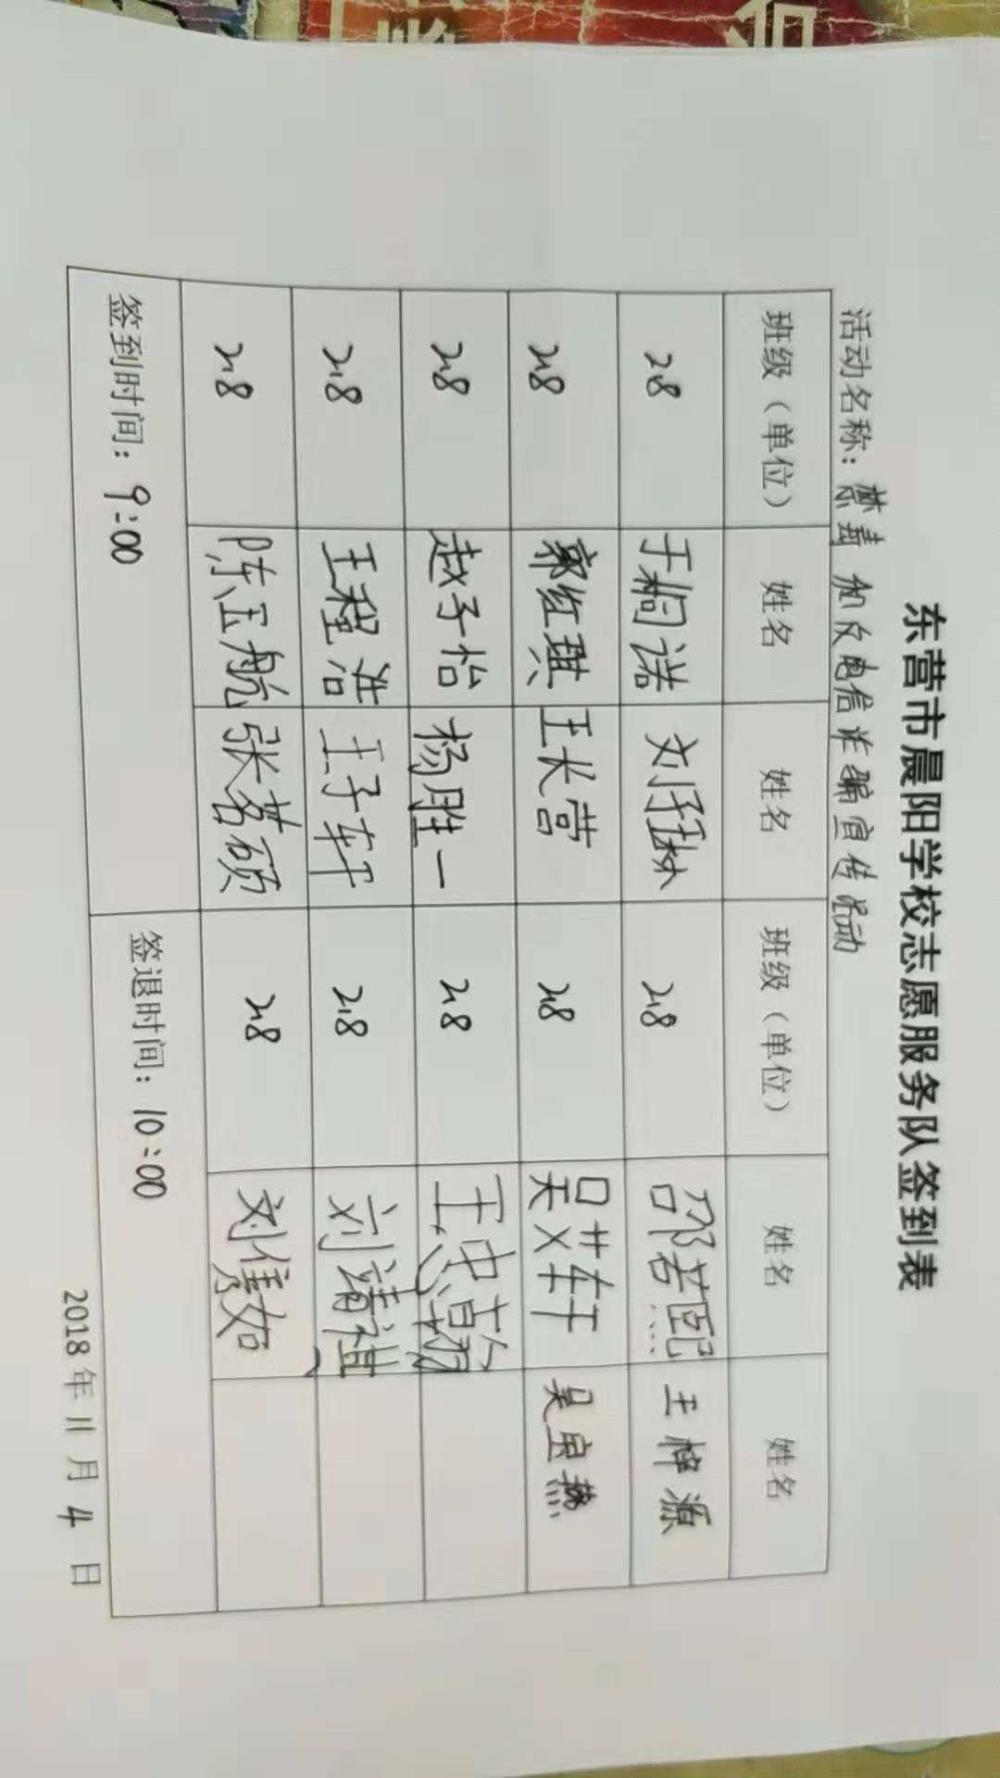 东营市晨阳学校志愿服务队签到表
活动名称：禁毒和反电信诈骗宣传活动
班级（单位） 姓名 姓名 班级（单位） 姓名 姓名
2.8 于桐诺 2.8 王梓源
2.8 郭红琪 王长营 2.8 吴奕轩 吴宝燕
2.8 赵子怡 杨胜一 2.8
2.8 王程浩 王子轩 2.8 刘靖祺
2.8 陈玉航 张茗硕 2.8
签到时间：9:00 签退时间：10:00
2018年11月4日